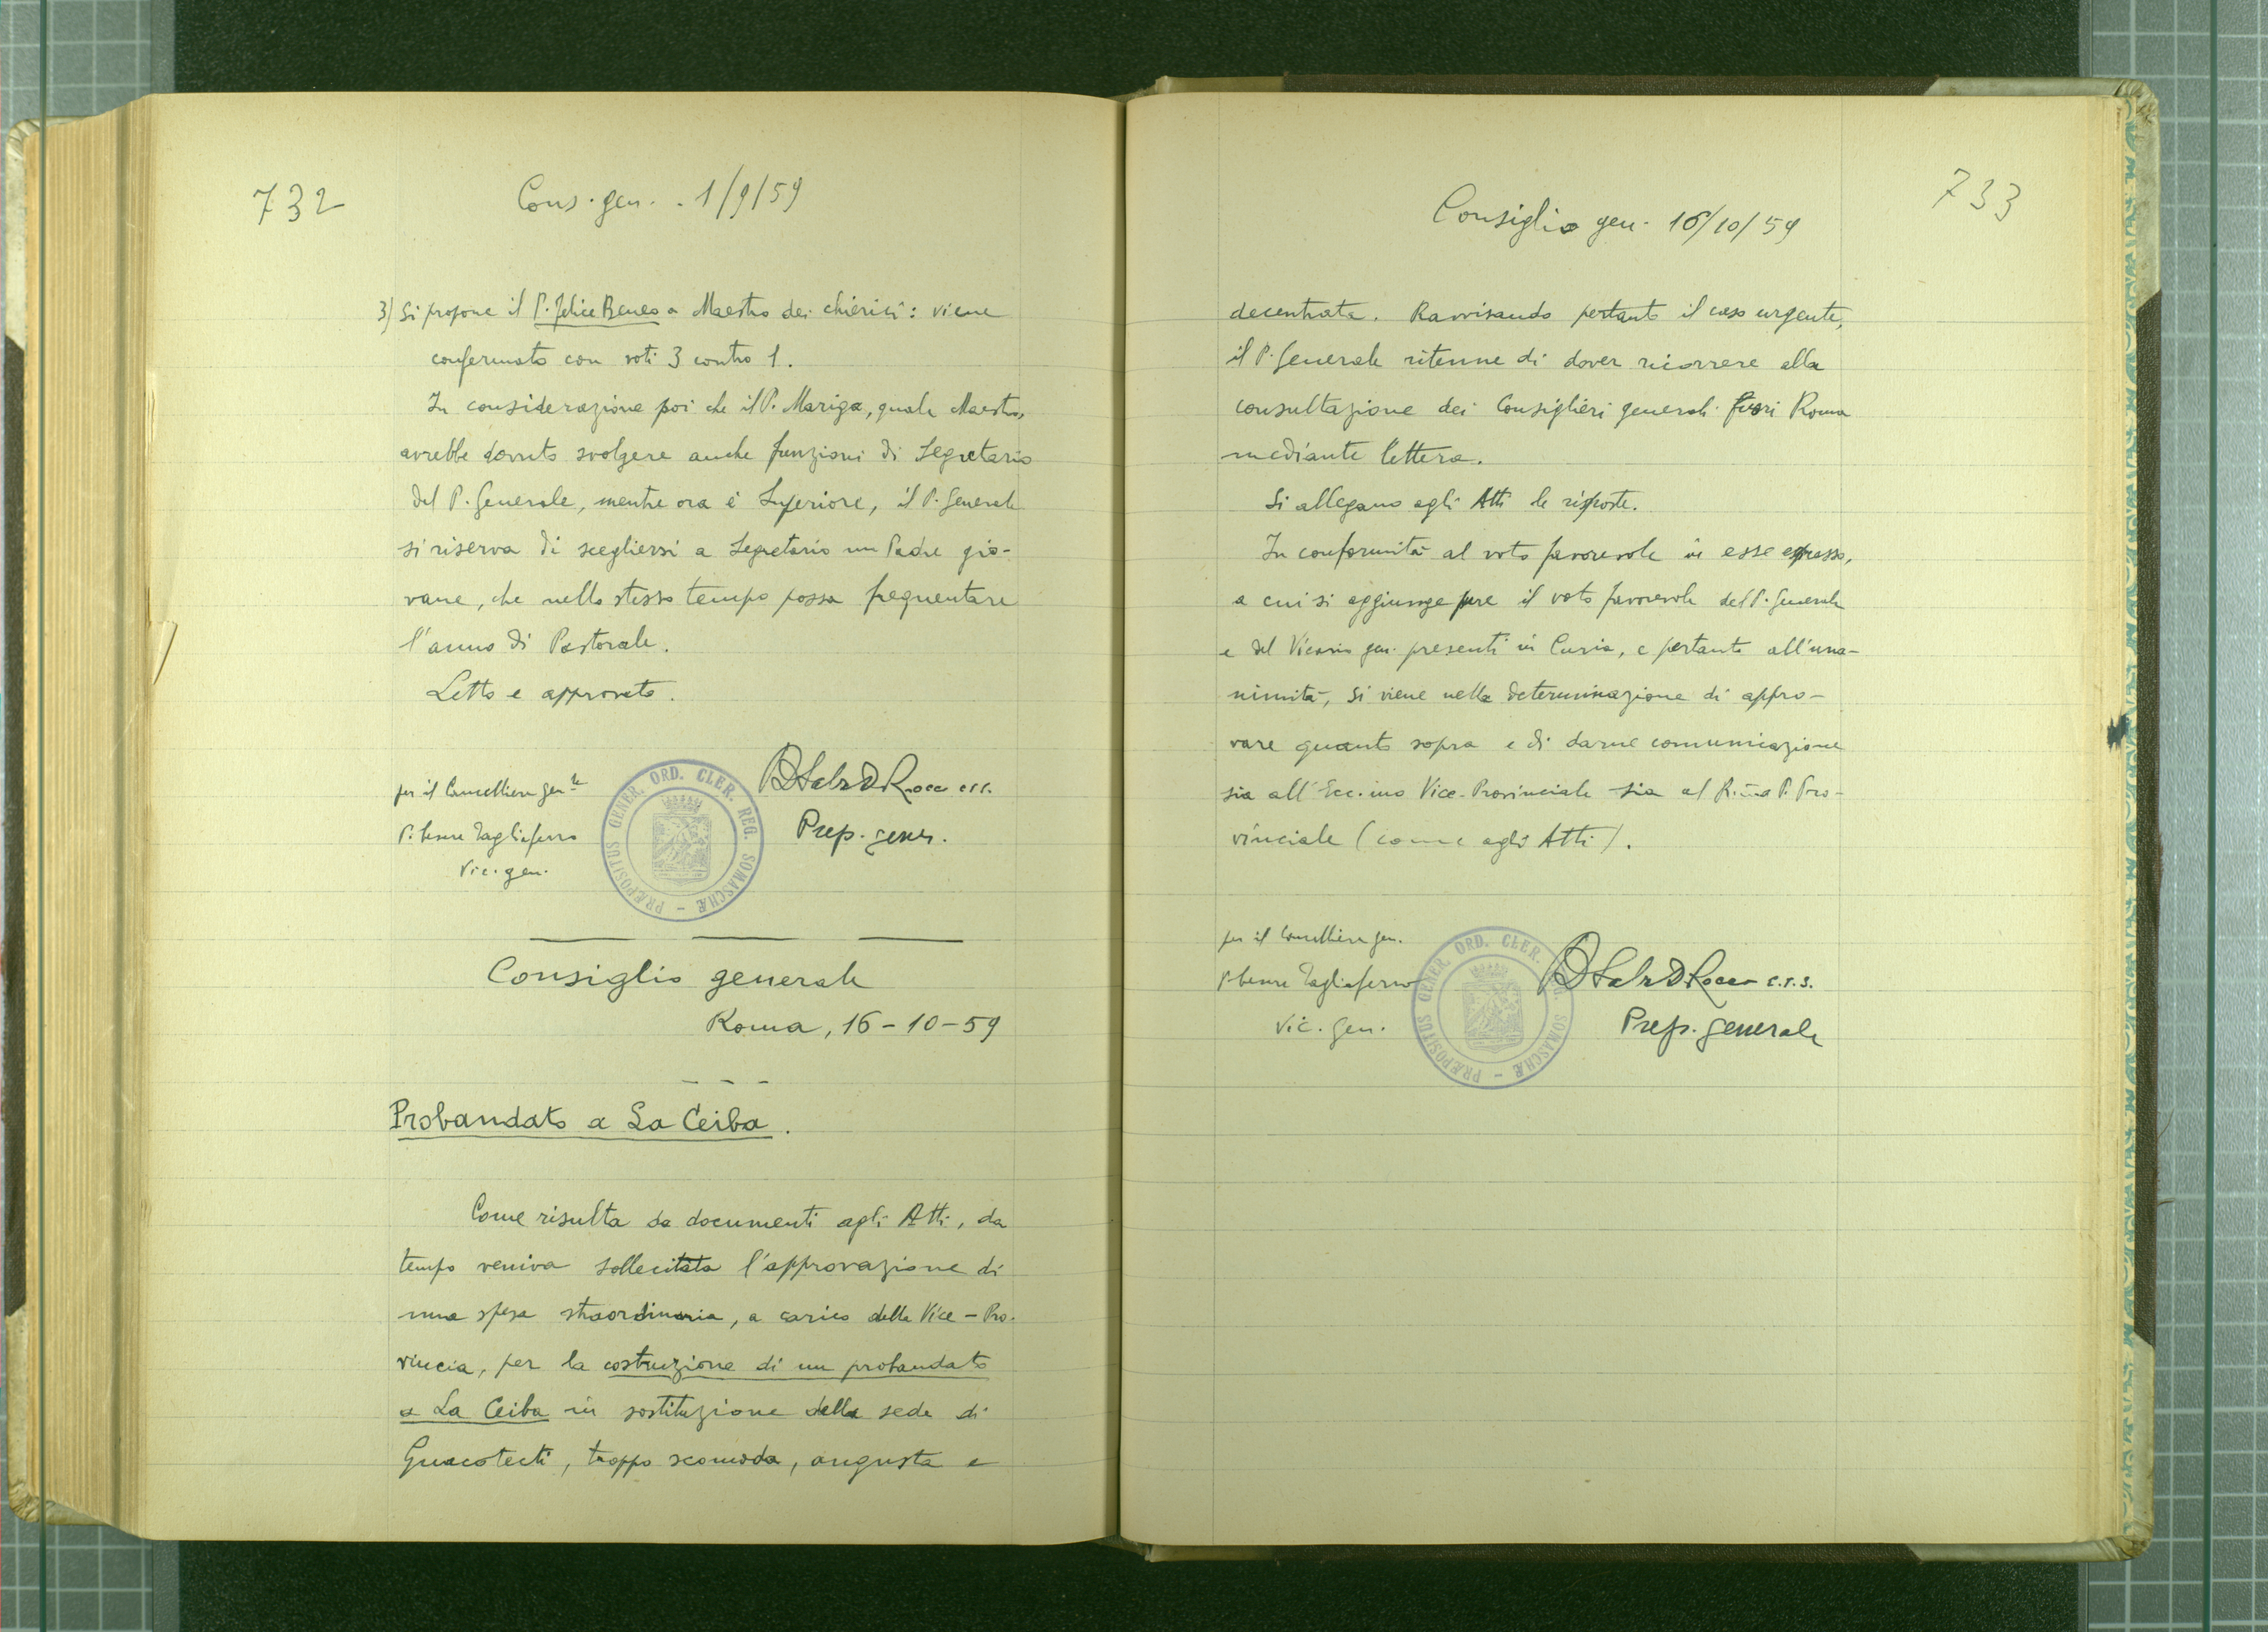 732
Cons. gen. - 1/9/59
3) Si propone il P. Felice Beneo a Maestro dei chierici: viene
confermato con voti 3 contro 1.
In considerazione poi che il P. Mariga, quale Maestro,
avrebbe dovuto svolgere anche funzioni di Segretario
del P. Generale, mentre ora è Superiore, il P. Generale
si riserva di scegliersi a Segretario un Padre gio-
vane, che nello stesso tempo possa frequentare
l'anno di Pastorale.
Letto e approvato.
per il Cancelliere gen.le
P. Cesare Tagliaferro
Vic. gen.
Rocco crs.
Prep. gener.
PRÆPOSITUS GENER. ORD. CLER. REG. SOMASCHÆ -
Consiglio generale
Roma, 16-10-59
Probandato a La Ceiba.
Come risulta da documenti agli Atti, da
tempo veniva sollecitata l'approvazione di
una spesa straordinaria, a carico della Vice-Pro-
vincia, per la costruzione di un probandato
a La Ceiba in sostituzione della sede di
Guacotecti, troppo scomoda, angusta e
733
Consiglio gen. 16/10/59
decentrata. Ravvisando pertanto il caso urgente,
il P. Generale ritenne di dover ricorrere alla
consultazione dei Consiglieri generali fuori Roma
mediante lettera.
Si allegano agli Atti le risposte.
In conformità al voto favorevole in esse espresso,
a cui si aggiunge pure il voto favorevole del P. Generale
e del Vicario gen. presenti in Curia, e pertanto all'una-
nimità, si viene nella determinazione di appro-
vare quanto sopra e di darne comunicazione
sia all'Ecc.mo Vice-Provinciale sia al P. Pro-
vinciale (come agli Atti).
per il Cancelliere gen.
P. Cesare Tagliaferro
Vic. gen.
Rocco c.r.s.
Prep. generale
PRÆPOSITUS GENER. ORD. CLER. REG. SOMASCHÆ -